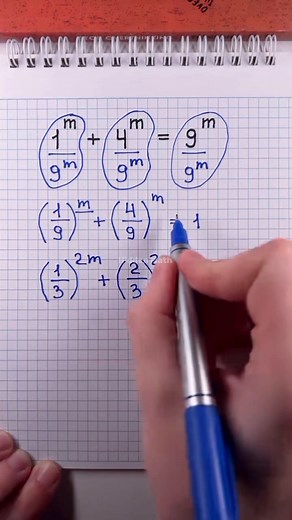 1^m/9^m + 4^m/9^m = 9^m/9^m
(1/9)^m + (4/9)^m = 1
(1/3)^2m + (2/3)^2